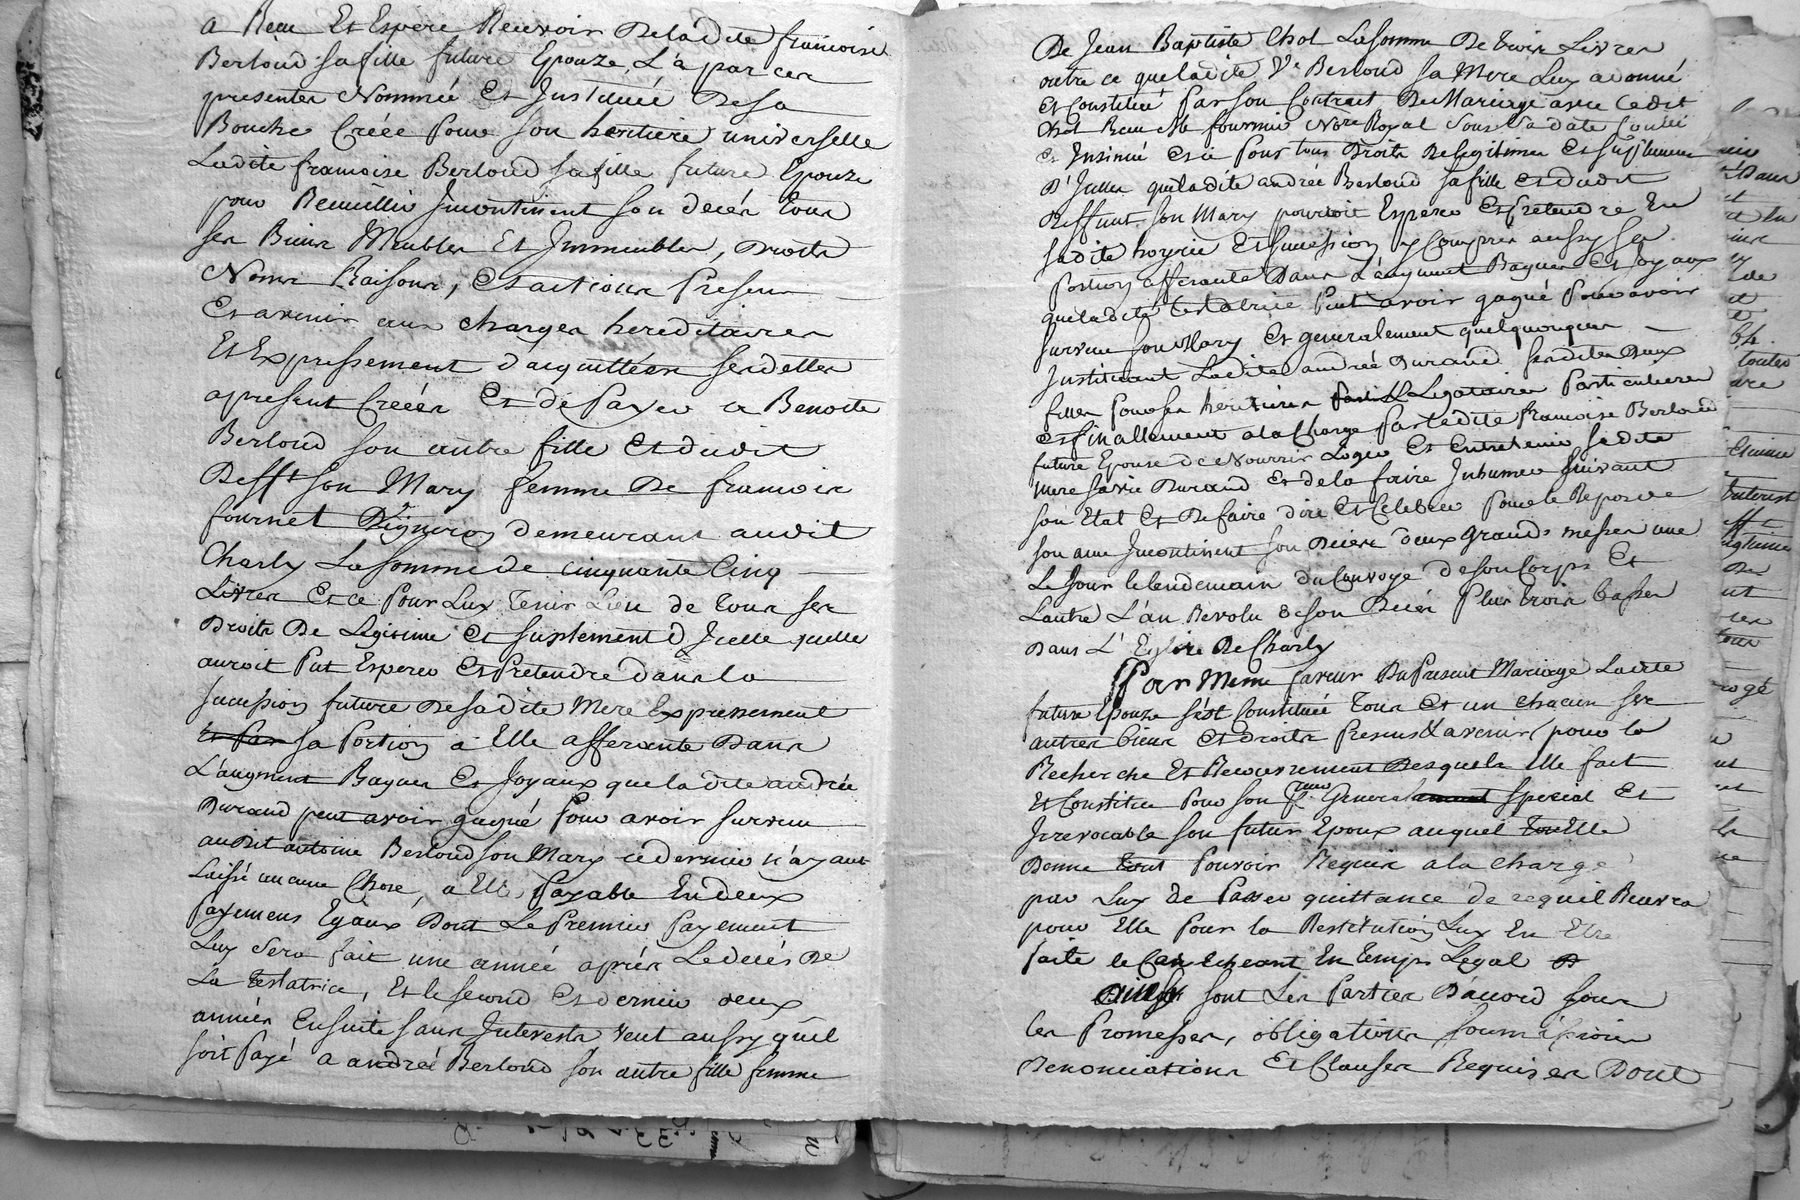 a Reçu Et Espere Recevoir Deladite francoise
Berloud sa fille future Epouze, L'a par cer
presenter Nommée Et Instituée Desa
Bouche Créée pour son heritiere universelle
Ladite francoise Berloud sa fille future Epouze
pour Recueillir Incontinent son decér tour
ser Bienr Meubler Et Immeubler, Droitr
Nomr Raisonr, Et actionr Presenr
Et avenir aux charger hereditairer
Et Expressement d'acquitter ser detter
apresent Créér Et de Payer a Benoite
Berloud son autre fille Et dudit
Defft son Mary femme De francoir
fournet Vigneron demeurant audit
Charly La somme de cinquante Cinq
Livrer Et ce Pour Luy Tenir Lieu de tour ser
Droitr De Legitime Et suplement d'Icelle quelle
auroit Put Esperer Et Pretendre dans la
succession future Desadite Mere Expressement
Et Par sa Portion a Elle afferante Danr
L'augment Baguer Et Joyaux que ladite andrée
Durand peut avoir gagné Pour avoir survecu
audit antoine Berloud son Mary ce dernier n'ayant
Laissé aucune Chose, a Elle payable En deux
payemens Egaux Dont Le Premier Payement
Luy sera fait une année aprér Le decés De
La Testatrice, Et le second Et dernier deux
annéer Ensuite sanr Interestr veut aussy qu'il
soit Payé a andreé Berloud son autre fille femme
De Jean Baptiste Chol La somme De troir Livrer
outre ce que ladite Ve Berloud sa Mere Luy a donné
Et Constitué Par son Contrat De Mariage avec Cedit
Chol Recu Me fournie Notre Royal Sous sa date
Et Insinué Et ce Pour tous Droitr De legitime Et suplement
D'Icelle que ladite andreé Berloud sa fille Et dudit
Deffunt son Mary pourroit Esperer Et Pretendre En
sadite hoyrie Et succession y Comprer aussy sa
portion afferante Dans L'augment Baguer Et Joyaux
que ladite testatrice Peut avoir gagné Pour avoir
survecu son Mary Et generalement quelquonquer
Instituant Ladite andreé Durand ser diter Deux
filler Pour ser heritierer Legatairer Particulierer
Et finallement a la Charge Par ladite francoise Berloud
future Epouse de Nourrir Loger Et Entretenir sadite
Mere savie Durand Et de la faire Inhumer suivant
son Etat Et De faire dire Et Celebrer Pour le Repos de
son ame Incontinent son Decér deux Grandr messer une
Le Jour le lendemain du Convoye de son Corps Et
Lautre L'an Revolu de son Decér Plur troir basser
Danr L'Eglise De Charly
Par Meme faveur Du Present Mariage Ladite
future Epouze s'est Constituée Tour Et un chacun ser
autrer bienr Et droitr Presens & avenir pour la
Recherche Et Recouvrement Desquelr Elle fait
Et Constitue Pour son Pr. General special Et
Irrevocable son futur Epoux auquel Elle
Donne tout Pouvoir Requir a la charge
par Luy de Passer quittance de cequil Recevra
pour Elle Pour la Restitution Luy En Etre
faite le Cas Echeant En Temps Legal
Ainsy sont Ler Partier Daccord sour
ler Promesser, obligationr soumissionr
Renonciationr Et Clauser Requiser Dont